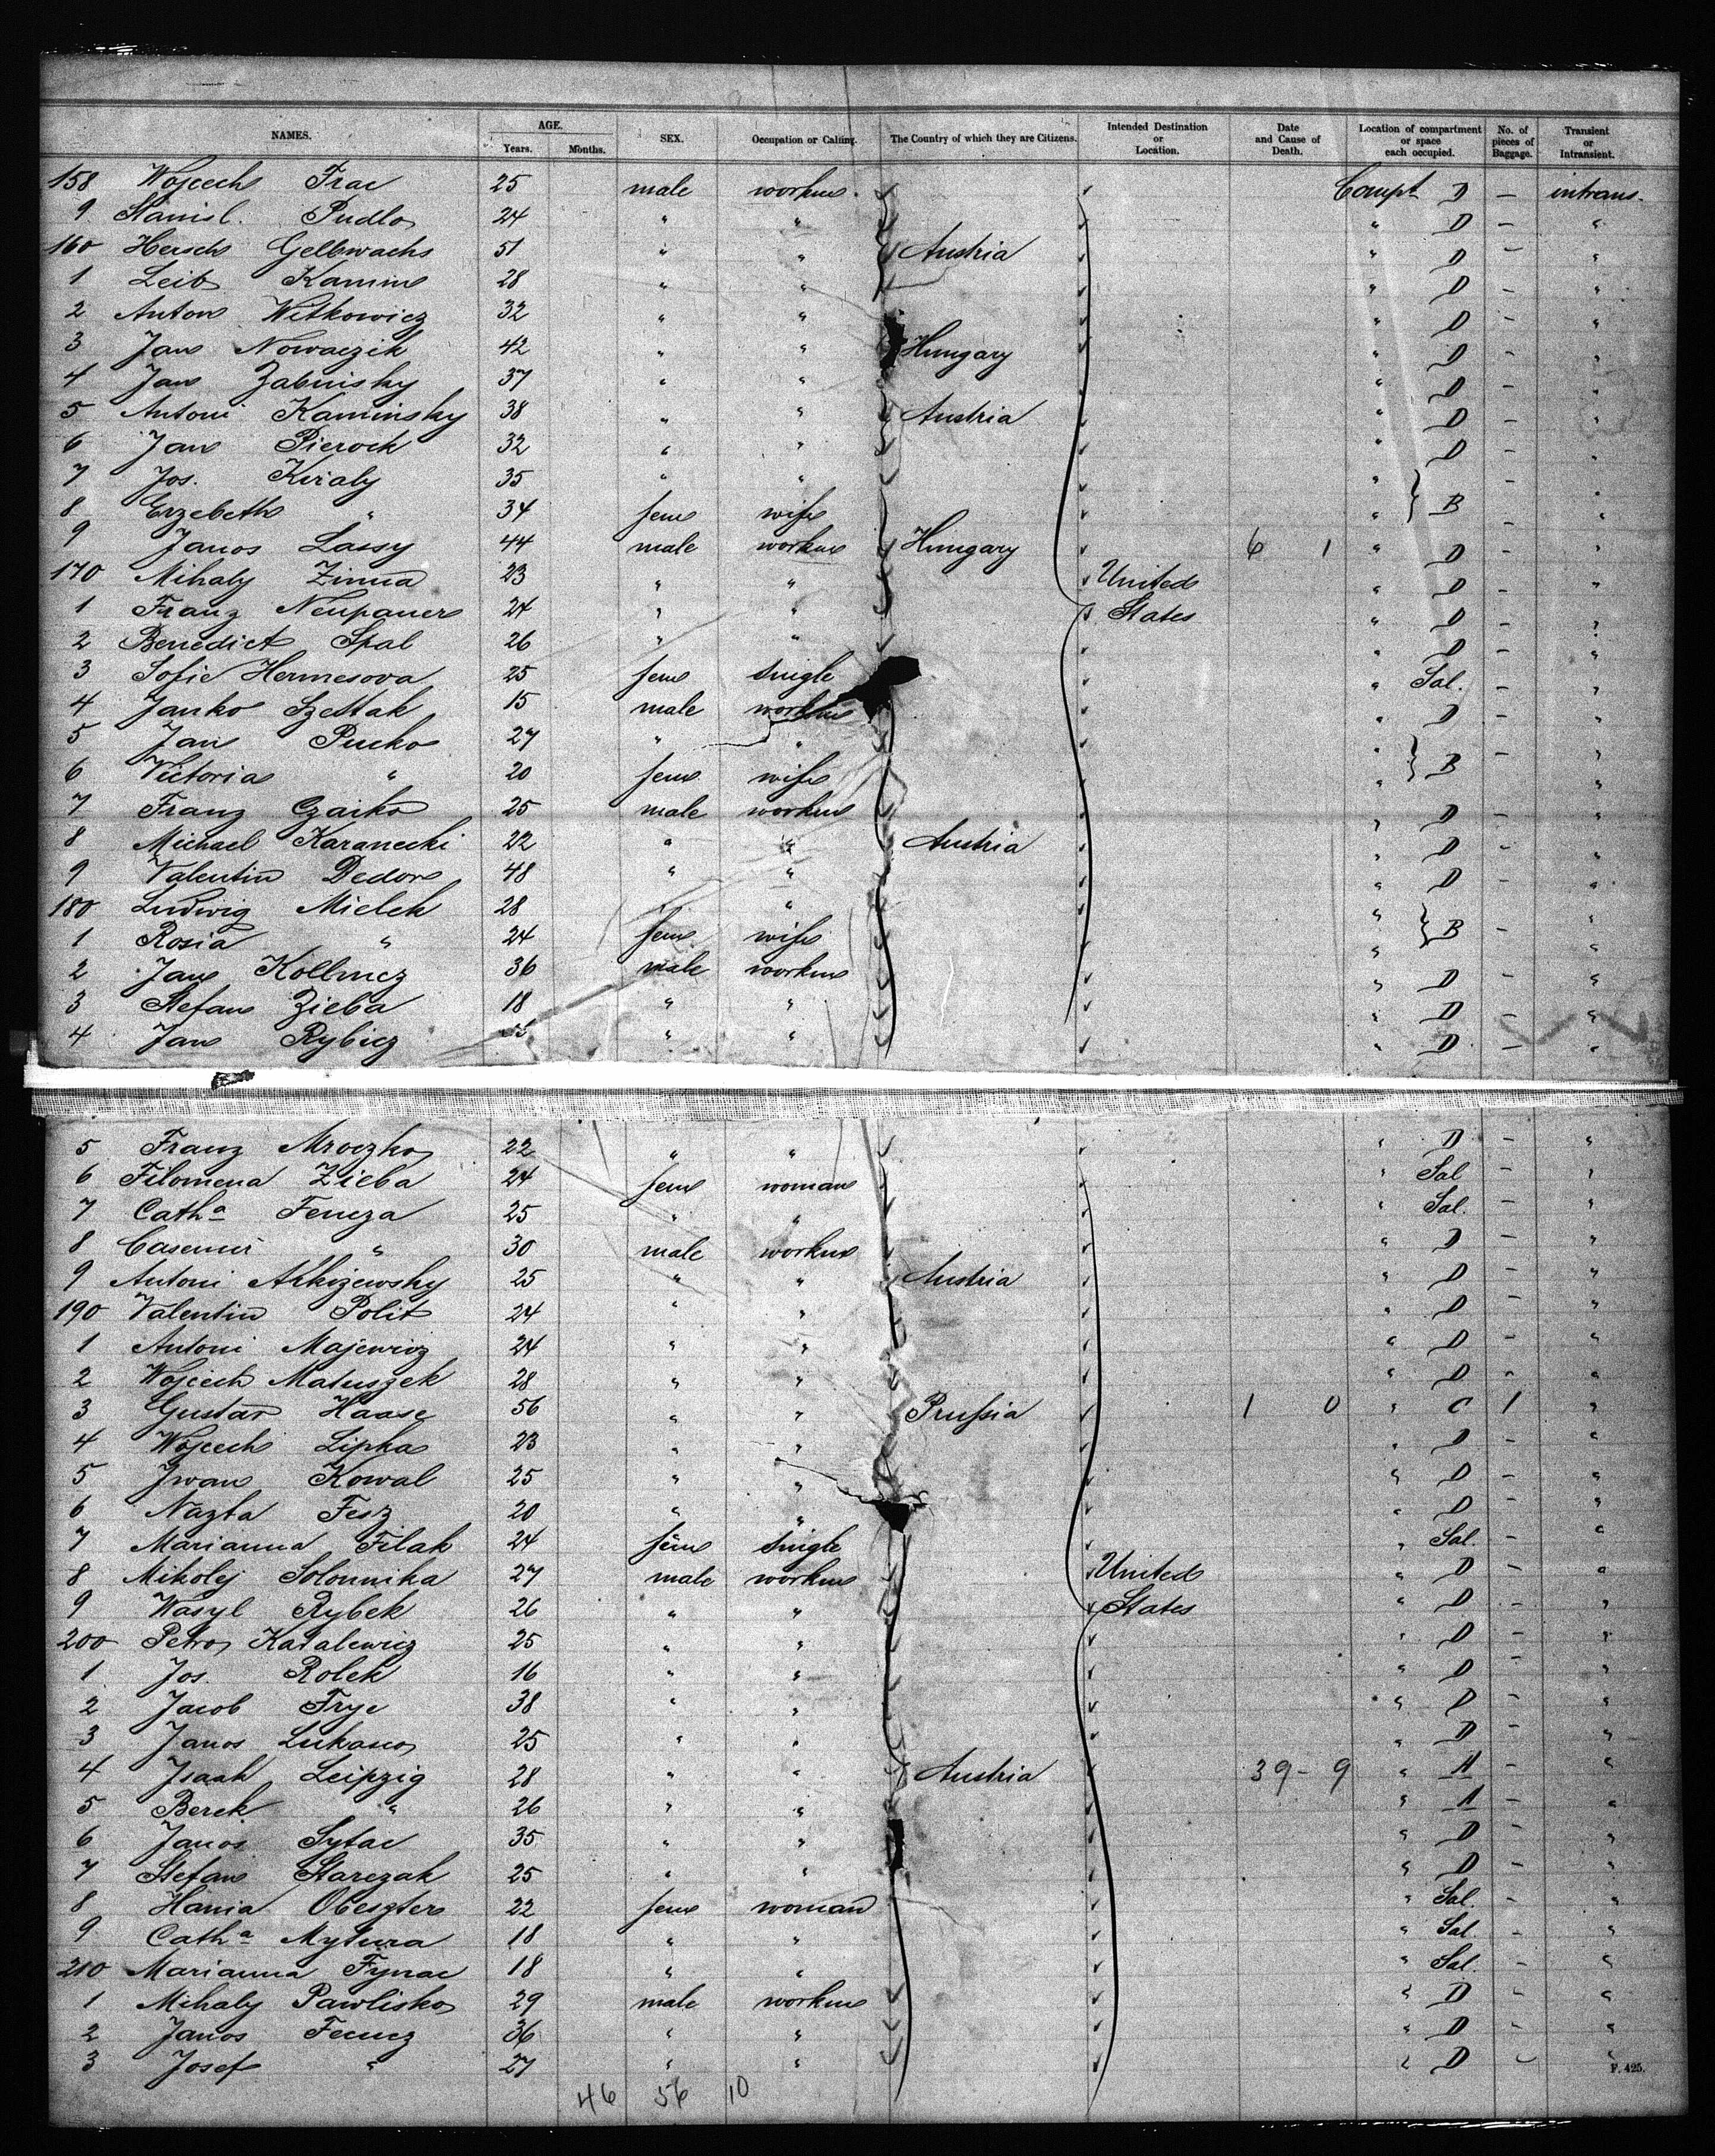 NAMES. AGE. Years. Months. SEX. Occupation or Calling. The Country of which they are Citizens. Intended Destination or Location. Date and Cause of Death. Location of compartment or space each occupied. No. of pieces of Baggage. Transient or Intransient.
158 Wojcech Frac 25 male workm Compt D – intrans.
9 Stanisl. Pudlo 24 " " " D – "
160 Hersch Gelbwachs 51 " " Austria " D – "
1 Leib Kamm 28 " " " D – "
2 Anton Witkowicz 32 " " " D – "
3 Jan Nowaczik 42 " " Hungary " D – "
4 Jan Zabinsky 37 " " " D – "
5 Antoni Kaminsky 38 " " Austria " D – "
6 Jan Pierock 32 " " " D – "
7 Jos. Kiraly 35 " " " – "
8 Erzebeth " 34 fem wife " B – "
9 Janos Lassy 44 male workm Hungary 6 1 " D – "
170 Mihaly Zima 23 " " United " D – "
1 Franz Neupauer 24 " " States " D – "
2 Benedict Spal 26 " " " D – "
3 Sofie Hermesova 25 fem single " Sal. – "
4 Janko Szettak 15 male workm " D – "
5 Jan Pucko 27 " " " – "
6 Victoria " 20 fem wife " B "
7 Franz Czaiko 25 male workm " D – "
8 Michael Karanecki 22 " " Austria " D – "
9 Valentin Dedon 48 " " " D – "
180 Ludwig Mielek 28 " " " – "
1 Rosia " 24 fem wife " B "
2 Jan Kollmez 36 male workm " D – "
3 Stefan Zieba 18 " " " D – "
4 Jan Rybicz " " " D – "
5 Franz Mroczko 22 " " " D – "
6 Filomena Zieba 24 fem woman " Sal – "
7 Catha Fencza 25 " " " Sal. – "
8 Casemir " 30 male workm " D – "
9 Antoni 25 " " Austria " D – "
190 Valentin Polit 24 " " " D – "
1 Antoni Majewicz 24 " " " D – "
2 Wojcech Matuszek 28 " " " D – "
3 Gustav Haase 56 " " Prussia 1 0 " C 1 "
4 Wojcech Lipka 23 " " " D – "
5 Iwan Kowal 25 " " " D – "
6 Nazta Fesz 20 " " " D – "
7 Marianna Filak 24 fem single " Sal. – "
8 Mikolej Solonnika 27 male workm United " D – "
9 Wasyl Rybek 26 " " States " D – "
200 Petro Katalewicz 25 " " " D – "
1 Jos. Rolek 16 " " " D – "
2 Jacob Fryc 38 " " " D – "
3 Janos Lukasco 25 " " " D – "
4 Isaak Leipzig 28 " " Austria 39 – 9 " A – "
5 Berek " 26 " " " A – "
6 Janos Sytac 35 " " " D – "
7 Stefan Starczak 25 " " " D – "
8 Hania Obeszter 22 fem woman " Sal. – "
9 Catha Mytura 18 " " " Sal – "
210 Marianna Fynac 18 " " " Sal. – "
1 Mihaly Pawlisko 29 male workm " D – "
2 Janos Fencz 36 " " " D – "
3 Josef " 27 " " " D – "
F. 425.
46 56 10